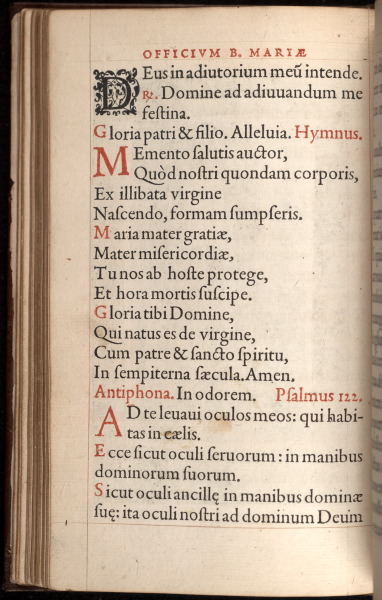 OFFICIVM B. MARIÆ
DEus in adiutorium meũ intende.
℞. Domine ad adiuuandum me
festina.
Gloria patri & filio. Alleluia. Hymnus.
MEmento salutis auctor,
Quòd nostri quondam corporis,
Ex illibata virgine
Nascendo, formam sumpseris.
Maria mater gratiæ,
Mater misericordiæ,
Tu nos ab hoste protege,
Et hora mortis suscipe.
Gloria tibi Domine,
Qui natus es de virgine,
Cum patre & sancto spiritu,
In sempiterna sæcula. Amen.
Antiphona. In odorem. Psalmus 122.
AD te leuaui oculos meos: qui habi-
tas in cælis.
Ecce sicut oculi seruorum: in manibus
dominorum suorum.
Sicut oculi ancillę in manibus dominæ
suę: ita oculi nostri ad dominum Deum